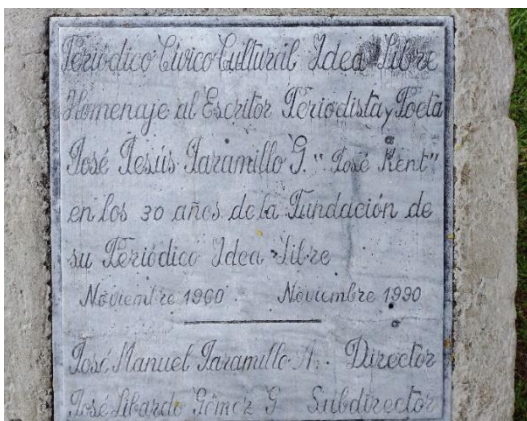 Periódico Cívico Cultural Idea Libre
Homenaje al Escritor Periodista y Poeta
José Jesús Jaramillo G. "José Kent"
en los 30 años de la Fundación de
su Periódico Idea Libre
Noviembre 1960. Noviembre 1990
José Manuel Jaramillo A. Director
José Libardo Gómez G. Subdirector